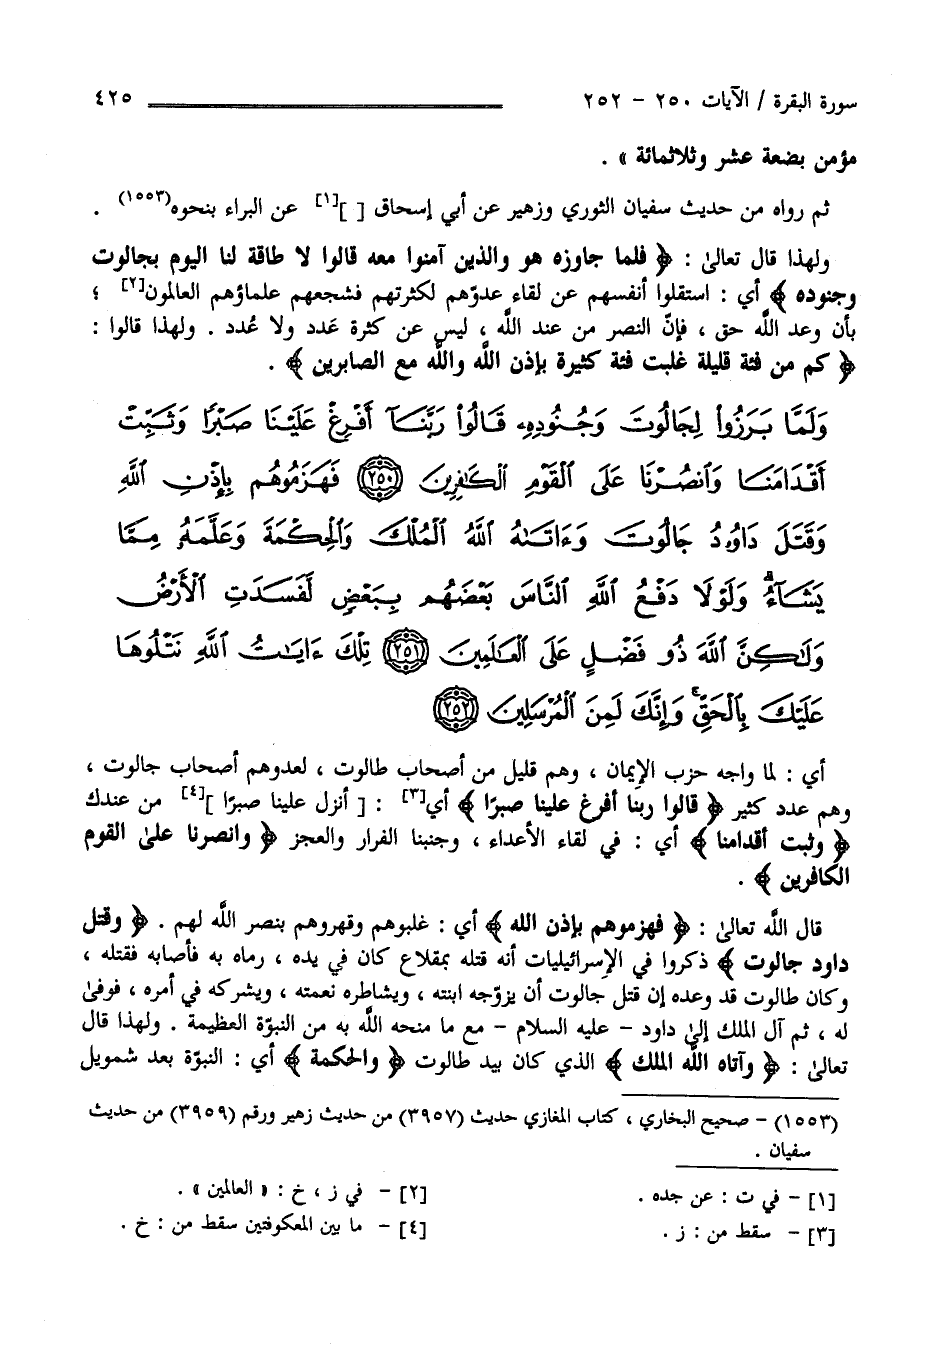 سورة البقرة / الآيات ٢٥٠ – ٢٥٢ ٤٢٥
مؤمن بضعة عشر وثلاثمائة » .
ثم رواه من حديث سفيان الثوري وزهير عن أبي إسحاق [ ][١] عن البراء بنحوه(١٥٥٣) .
ولهذا قال تعالىٰ : ﴿ فلما جاوزه هو والذين آمنوا معه قالوا لا طاقة لنا اليوم بجالوت
وجنوده ﴾ أي : استقلوا أنفسهم عن لقاء عدوّهم لكثرتهم فشجعهم علماؤهم العالمون[٢] ؛
بأن وعد اللَّه حق ، فإنّ النصر من عند اللَّه ، ليس عن كثرة عَدد ولا عُدد . ولهذا قالوا :
﴿ كم من فئة قليلة غلبت فئة كثيرة بإذن اللَّه واللَّه مع الصابرين ﴾ .
وَلَمَّا بَرَزُوا۟ لِجَالُوتَ وَجُنُودِهِۦ قَالُوا۟ رَبَّنَآ أَفْرِغْ عَلَيْنَا صَبْرًا وَثَبِّتْ
أَقْدَامَنَا وَٱنصُرْنَا عَلَى ٱلْقَوْمِ ٱلْكَٰفِرِينَ ﴿٢٥٠﴾ فَهَزَمُوهُم بِإِذْنِ ٱللَّهِ
وَقَتَلَ دَاوُۥدُ جَالُوتَ وَءَاتَىٰهُ ٱللَّهُ ٱلْمُلْكَ وَٱلْحِكْمَةَ وَعَلَّمَهُۥ مِمَّا
يَشَآءُ ۗ وَلَوْلَا دَفْعُ ٱللَّهِ ٱلنَّاسَ بَعْضَهُم بِبَعْضٍ لَّفَسَدَتِ ٱلْأَرْضُ
وَلَٰكِنَّ ٱللَّهَ ذُو فَضْلٍ عَلَى ٱلْعَٰلَمِينَ ﴿٢٥١﴾ تِلْكَ ءَايَٰتُ ٱللَّهِ نَتْلُوهَا
عَلَيْكَ بِٱلْحَقِّ ۚ وَإِنَّكَ لَمِنَ ٱلْمُرْسَلِينَ ﴿٢٥٢﴾
أي : لما واجه حزب الإيمان ، وهم قليل من أصحاب طالوت ، لعدوهم أصحاب جالوت ،
وهم عدد كثير ﴿ قالوا ربنا أفرغ علينا صبرًا ﴾ أي[٣] : [ أنزل علينا صبرًا ][٤] من عندك
﴿ وثبت أقدامنا ﴾ أي : في لقاء الأعداء ، وجنبنا الفرار والعجز ﴿ وانصرنا علىٰ القوم
الكافرين ﴾ .
قال اللَّه تعالىٰ : ﴿ فهزموهم بإذن الله ﴾ أي : غلبوهم وقهروهم بنصر اللَّه لهم . ﴿ وقتل
داود جالوت ﴾ ذكروا في الإسرائيليات أنه قتله بمقلاع كان في يده ، رماه به فأصابه فقتله ،
وكان طالوت قد وعده إن قتل جالوت أن يزوّجه ابنته ، ويشاطره نعمته ، ويشركه في أمره ، فوفىٰ
له ، ثم آل الملك إلىٰ داود – عليه السلام – مع ما منحه اللَّه به من النبوّة العظيمة . ولهذا قال
تعالىٰ : ﴿ وآتاه اللَّه الملك ﴾ الذي كان بيد طالوت ﴿ والحكمة ﴾ أي : النبوّة بعد شمويل
(١٥٥٣) – صحيح البخاري ، كتاب المغازي حديث (٣٩٥٧) من حديث زهير ورقم (٣٩٥٩) من حديث
سفيان .
[١] – في ت : عن جده . [٢] – في ز ، خ : « العالمين » .
[٣] – سقط من : ز . [٤] – ما بين المعكوفتين سقط من : خ .